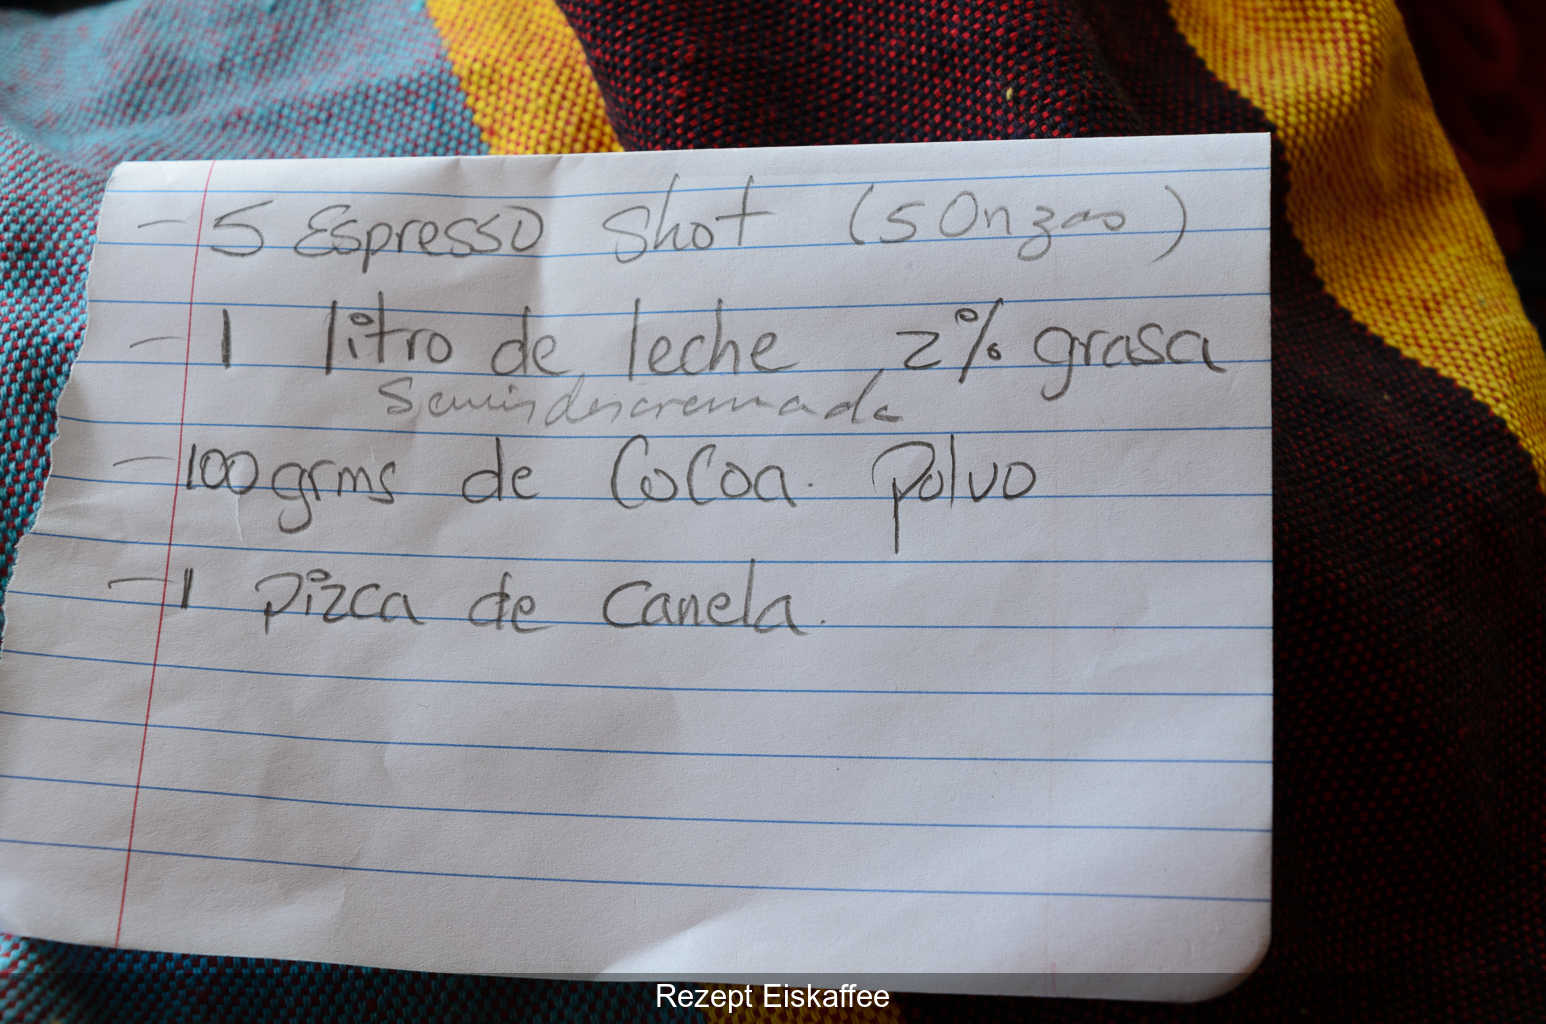 - 5 Espresso shot (5 Onzas)
- 1 litro de leche 2% grasa
Semidescremada
- 100 grms de Cocoa. Polvo
- 1 pizca de Canela.
Rezept Eiskaffee